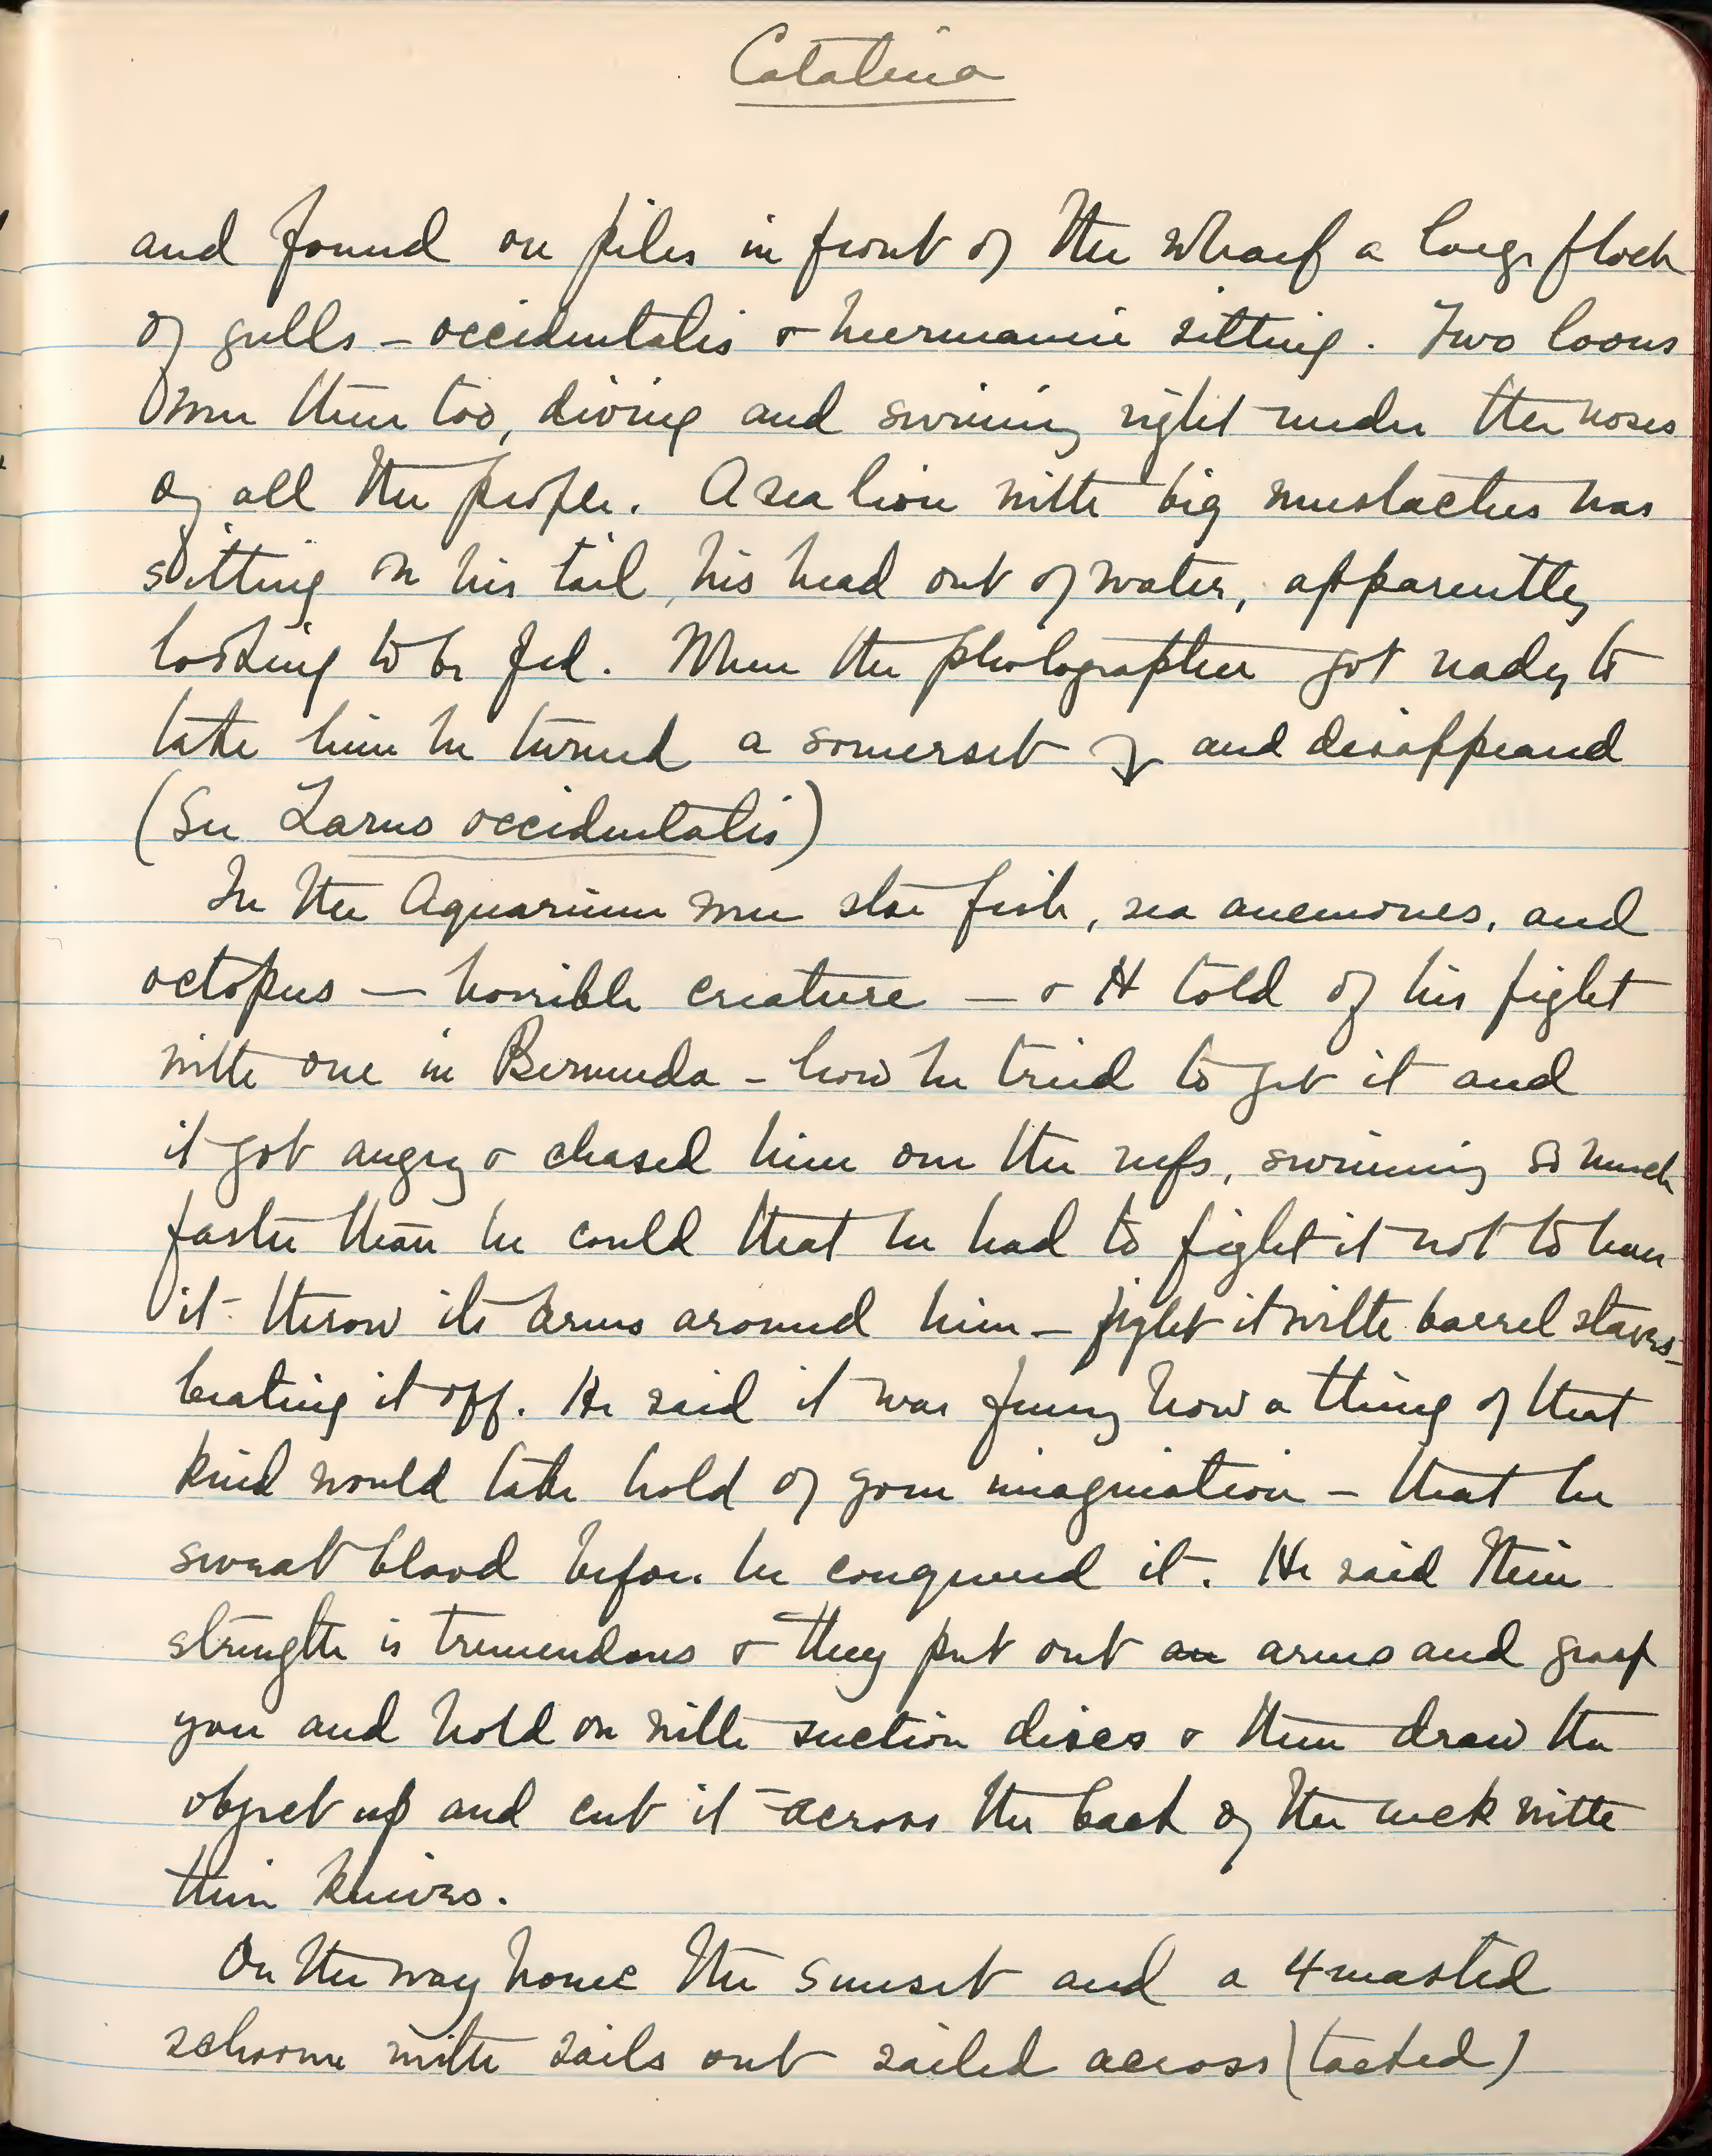 Catalina
and found on piles in front of the wharf a large flock
of gulls – occidentalis & heermanni sitting. Two loons
were there too, diving and swiming right under the noses
of all the people. A sea lion with big mustaches was
sitting on his tail, his head out of water, apparently
looking to be fed. When the photographer got ready to
take him he turned a somerset and disappeared
(See Larus occidentalis)
In the Aquarium were star fish, sea anemones, and
octopus — horrible creature — & H told of his fight
with one in Bermuda – how he tried to get it and
it got angry & chased him over the reefs, swimming so much
faster than he could that he had to fight it not to have
it throw its arms around him – fight it with barrel staves–
beating it off. He said it was funny how a thing of that
kind would take hold of your imagination – that he
sweat blood before he conquered it. He said their
strength is tremendous & they put out an arms and grasp
you and hold on with suction discs & then draw the
object up and cut it – across the back of the neck with
their knives.
On the way home the sunset and a 4 masted
schooner with sails out sailed across (tacked)